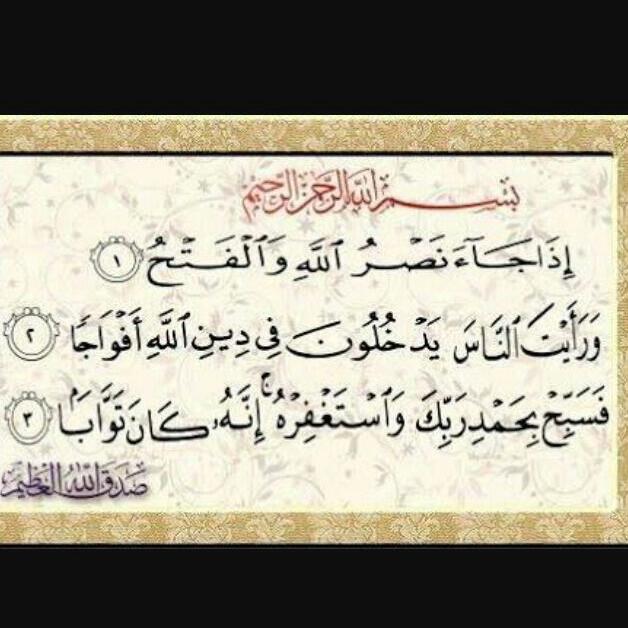 بِسْمِ اللَّهِ الرَّحْمَٰنِ الرَّحِيمِ
إِذَا جَآءَ نَصْرُ ٱللَّهِ وَٱلْفَتْحُ ١
وَرَأَيْتَ ٱلنَّاسَ يَدْخُلُونَ فِى دِينِ ٱللَّهِ أَفْوَاجًا ٢
فَسَبِّحْ بِحَمْدِ رَبِّكَ وَٱسْتَغْفِرْهُ ۚ إِنَّهُۥ كَانَ تَوَّابًۢا ٣
صدق الله العظيم